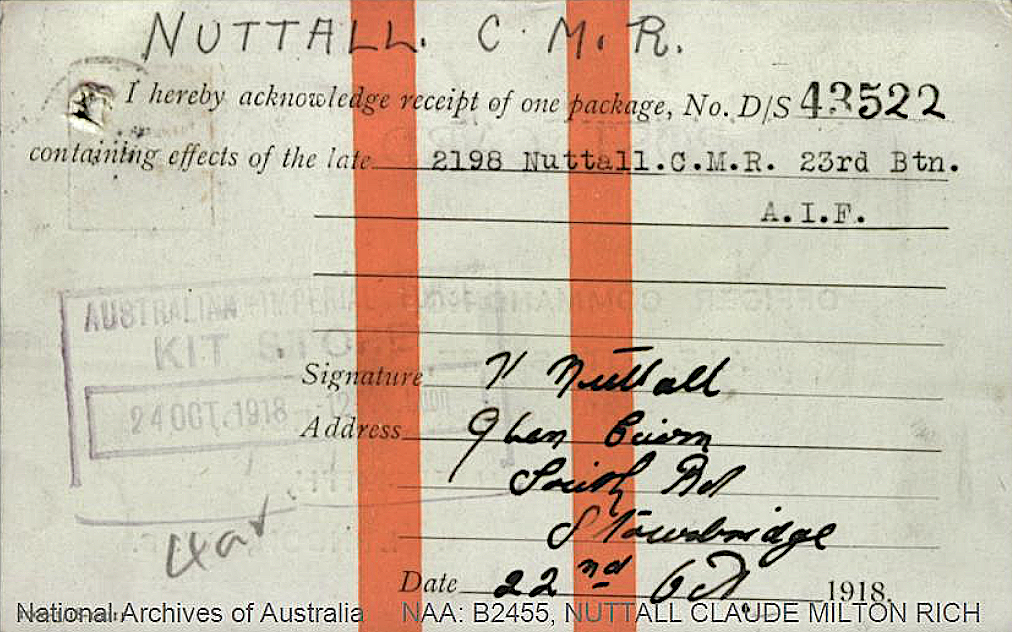 NUTTALL. C. M. R.
I hereby acknowledge receipt of one package, No. D/S 43522
containing effects of the late 2198 Nuttall.C.M.R. 23rd Btn.
A.I.F.
AUSTRALIAN IMPERIAL
KIT STORE
24 OCT. 1918
Signature Nuttall
Address Glen Cairn
South Rd
Stourbridge
Date 22nd Oct. 1918.
National Archives of Australia NAA: B2455, NUTTALL CLAUDE MILTON RICH